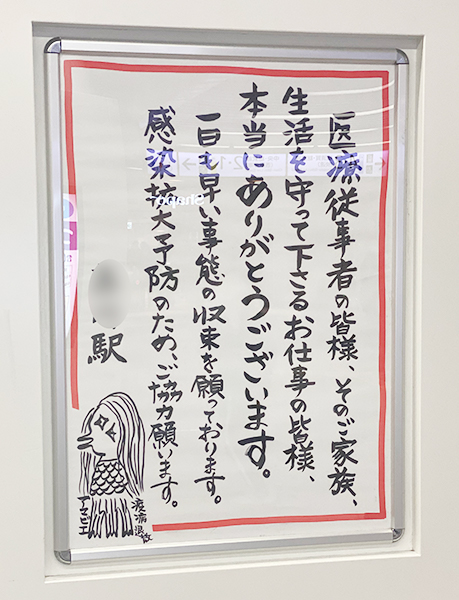 医療従事者の皆様、そのご家族、
生活を守って下さるお仕事の皆様、
本当にありがとうございます。
一日も早い事態の収束を願っております。
感染拡大予防のため、ご協力願います。
駅
アマビエ
疫病退散